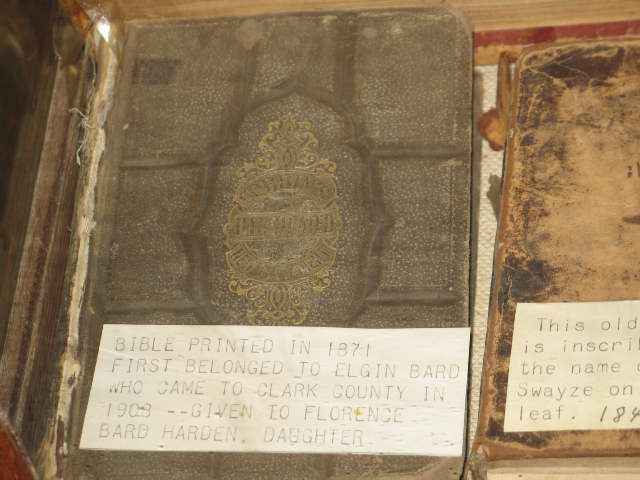 BIBLE PRINTED IN 1871
FIRST BELONGED TO ELGIN BARD
WHO CAME TO CLARK COUNTY IN
1903 --GIVEN TO FLORENCE
BARD HARDEN, DAUGHTER
This old
is inscri
the name
Swayze on
leaf. 184